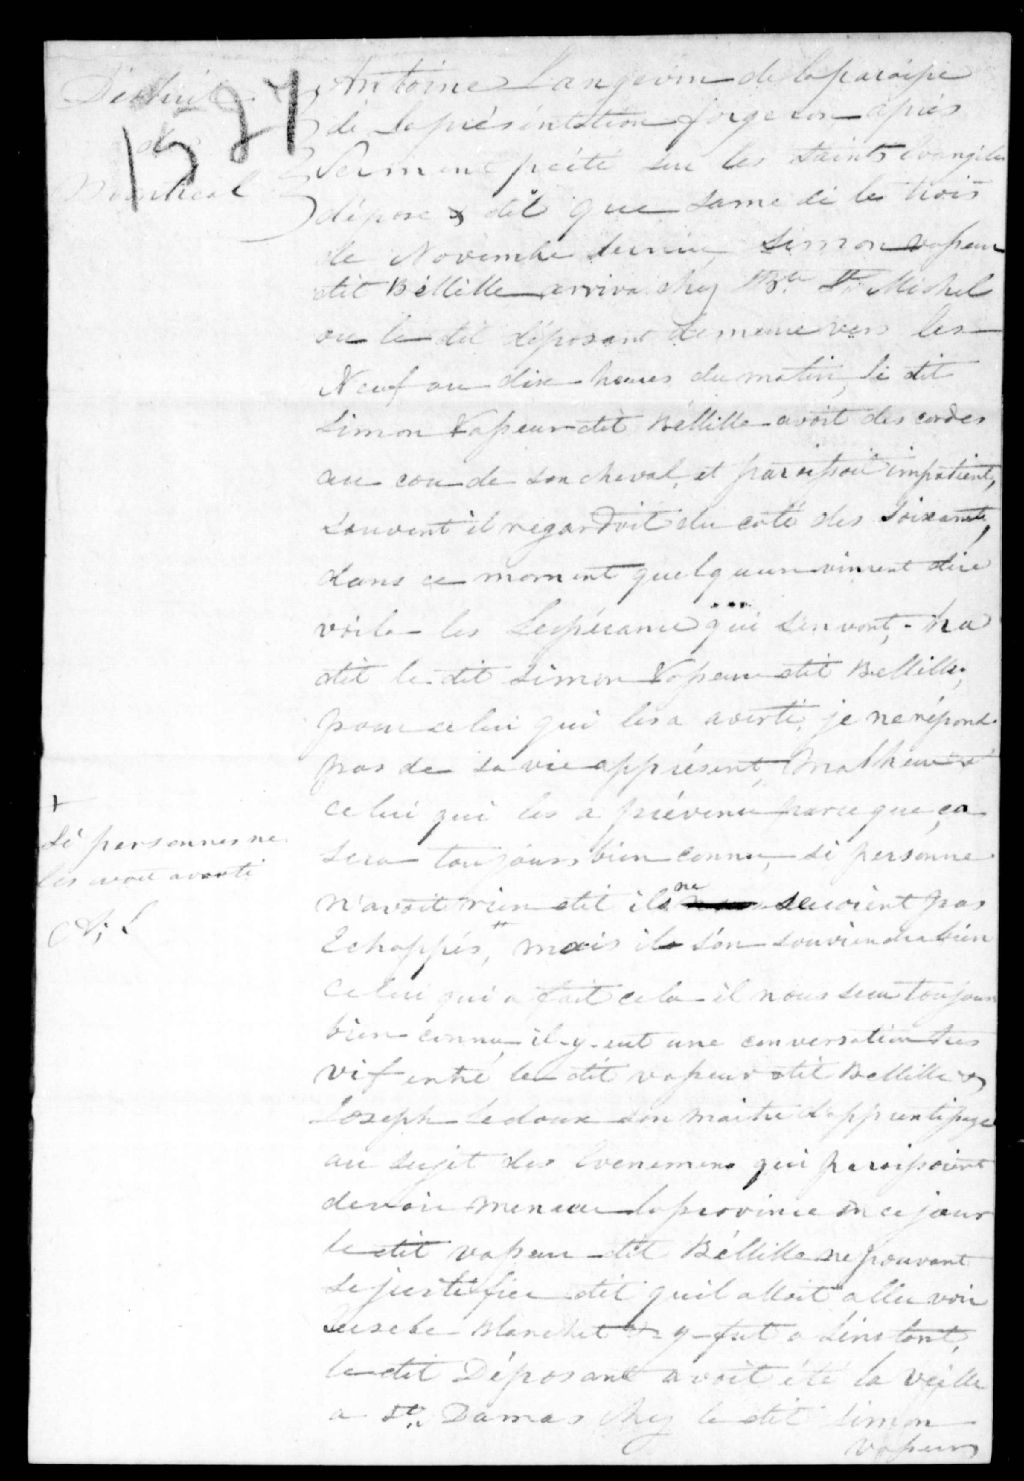 District
de
Montréal
1527
Antoine Langevin de la paroisse
de La présentation forgeron après
Serment prêté sur les Saints Evangiles
dépose & dit que Same di le trois
de Novembre dernier Simon vapeur
dit Béllille arriva chez Bte St Michel
ou le dit déposant demeure vers les
Neuf ou dix heures du matin, le dit
Simon Vapeur dit Béllille avoit des cordes
au cou de son cheval, et paroissoit impatient,
souvent il regardoit du coté des Soixante,
dans ce moment quelquun vinrent dire
voila les Lespérance qui s'en vont, ha
dit le dit Simon Vapeur dit Bellille,
pour celui qui les a averti, je ne répond
pas de sa vie apprésent, Malheur à
celui qui les a prévenu parce que ça
sera toujours bien connu, si personne
n'avoit rien dit ils ne seroient pas
Echappés, mais il s'en souviendra bien
Celui qui a fait cela il nous sera toujours
bien connu, il y eut une conversation tres
vif entre le dit vapeur dit Bellille &
Joseph Ledoux son maitre d'apprentissage
au sujet des Evenemens qui paroissoient
devoir menacer la province en ce jour
le dit vapeur dit Béllille ne pouvant
se justifier dit quil alloit aller voir
Eusebe Blanchet & y fut a l'instant,
le dit Déposant avoit été la veille
a St. Damas chez le dit Simon
vapeur
+
Si personnes ne
les avoit avorti
A, L